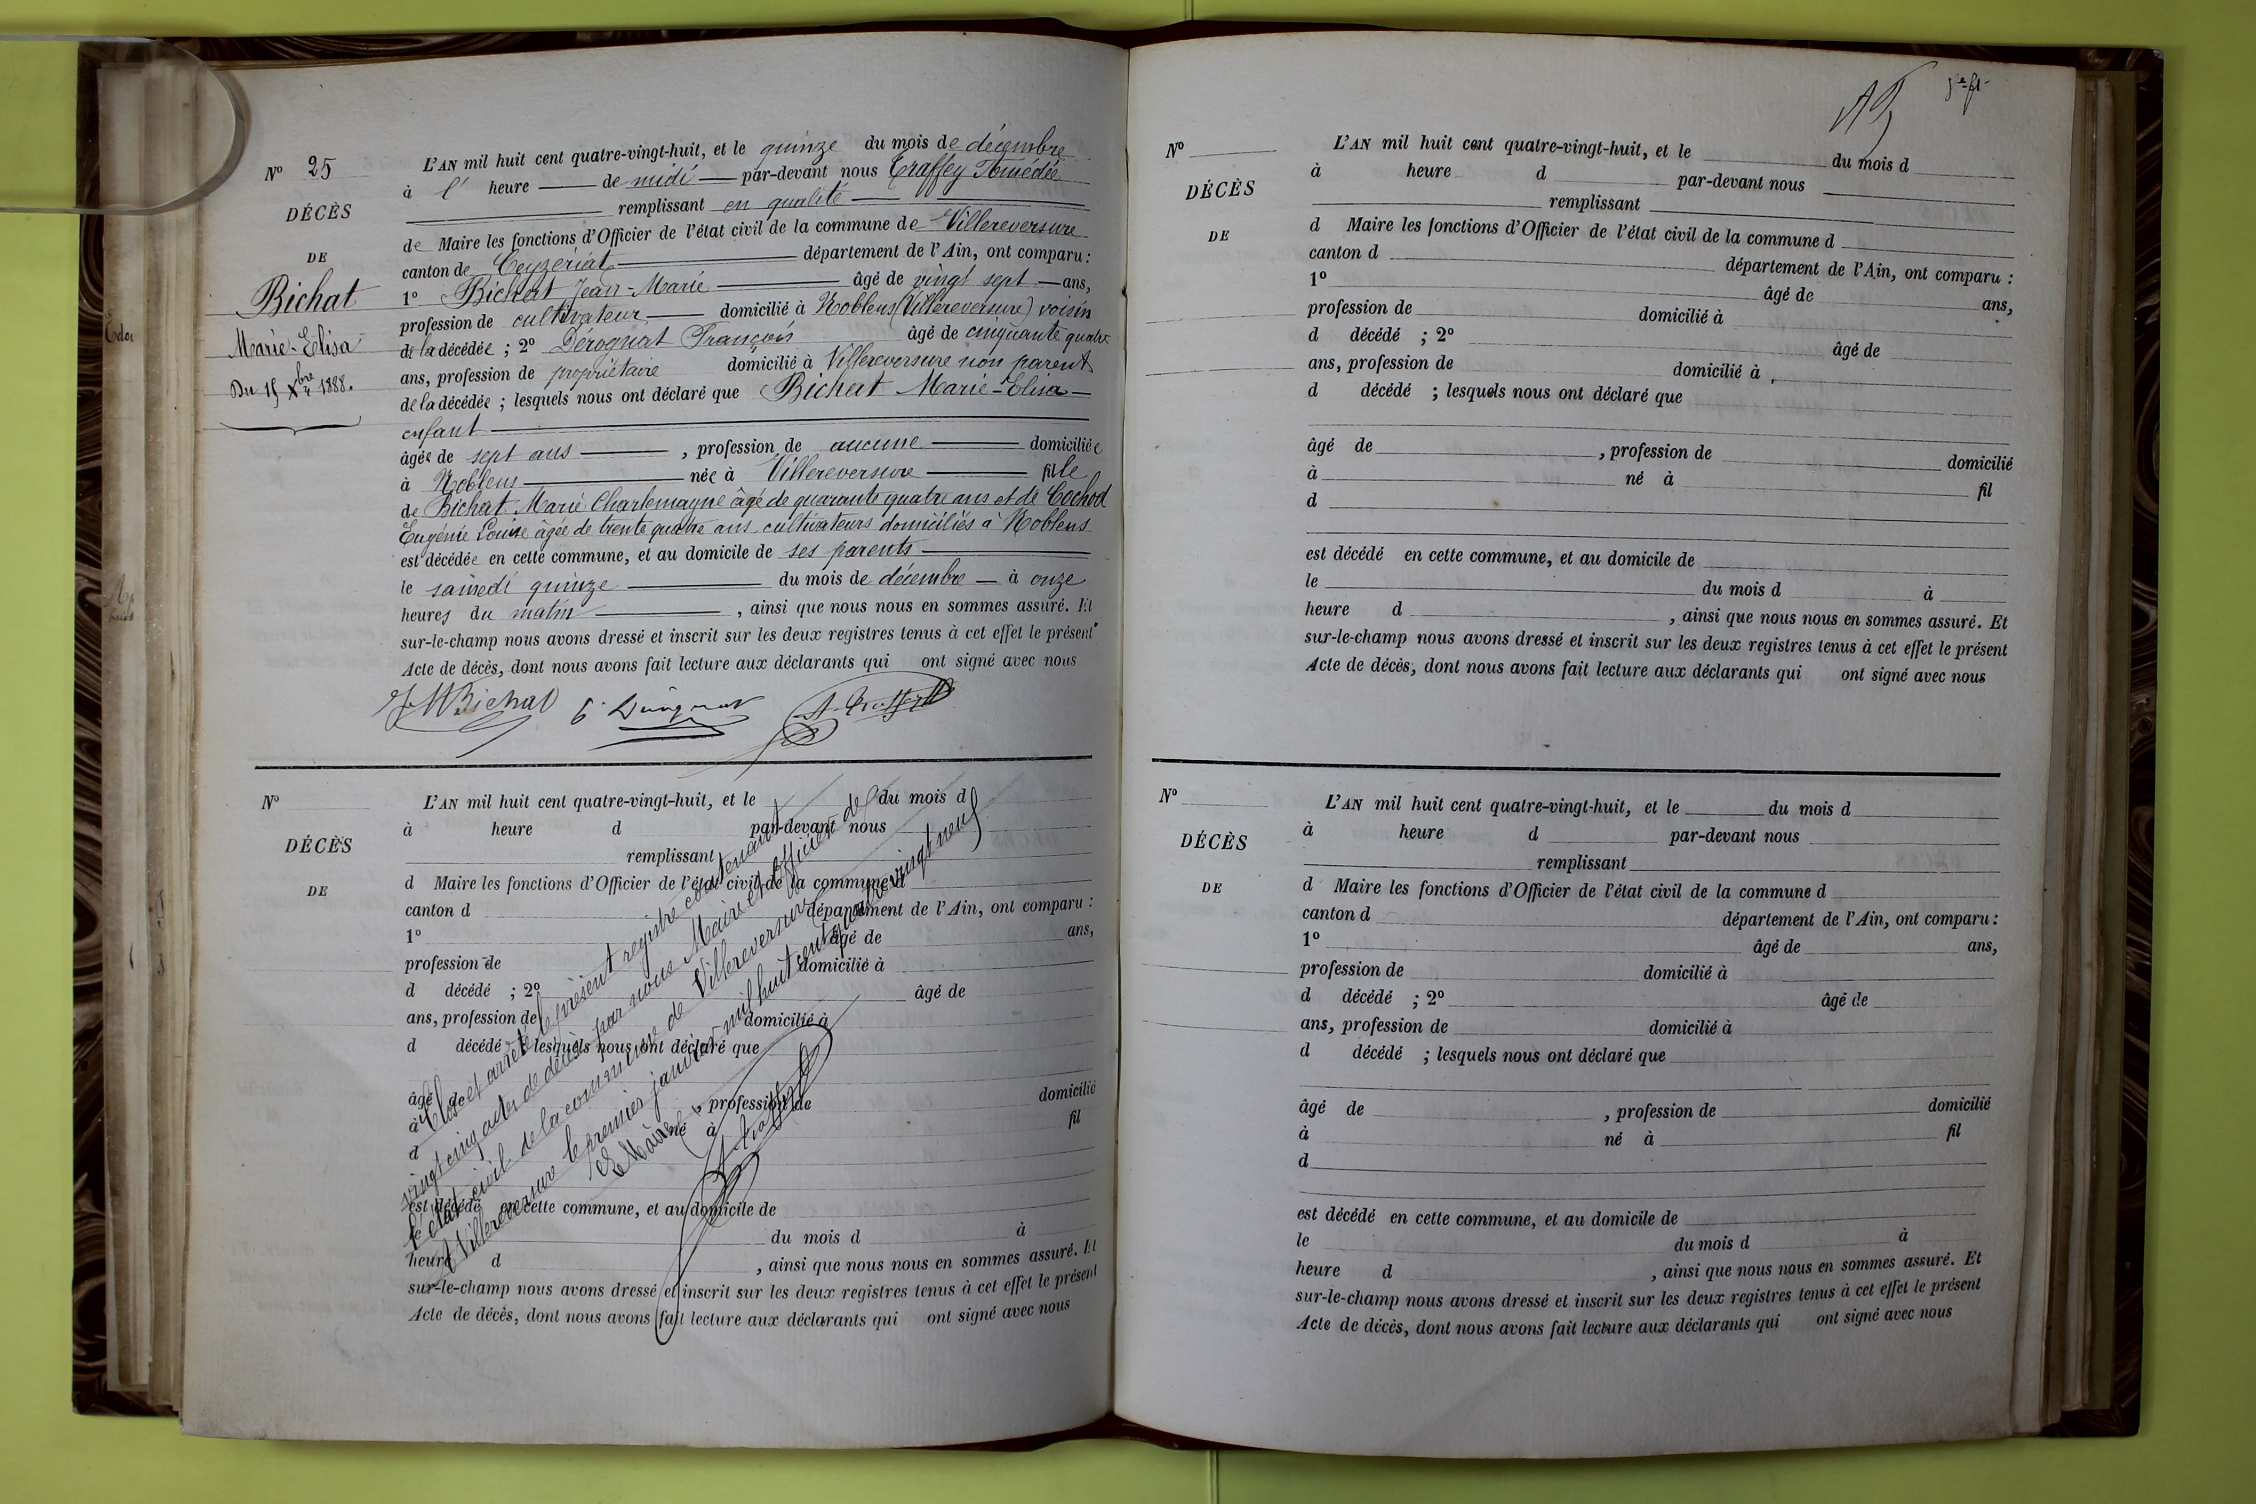 No 25
DÉCÈS
DE
Bichat
Marie-Elisa
Du 15 Xbre 1888.
L'AN mil huit cent quatre-vingt-huit, et le quinze du mois de décembre
à l' heure de midi par-devant nous Traffey Amédée
remplissant en qualité
de Maire les fonctions d'Officier de l'état civil de la commune de Villereversure
canton de Ceyzériat département de l'Ain, ont comparu :
1o Bichat Jean-Marie âgé de vingt sept ans,
profession de cultivateur domicilié à Noblens (Villereversure) voisin
de la décédée ; 2o Dérognat François âgé de cinquante quatre
ans, profession de propriétaire domicilié à Villereversure non parent
de la décédée ; lesquels nous ont déclaré que Bichat Marie-Elisa
enfant
âgée de sept ans , profession de aucune domiciliée
à Noblens née à Villereversure fille
de Bichat Marie Charlemagne âgé de quarante quatre ans et de Cochod
Eugénie Louise âgée de trente quatre ans cultivateurs domiciliés à Noblens
est décédée en cette commune, et au domicile de ses parents
le samedi quinze du mois de décembre à onze
heures du matin , ainsi que nous nous en sommes assuré. Et
sur-le-champ nous avons dressé et inscrit sur les deux registres tenus à cet effet le présent
Acte de décès, dont nous avons fait lecture aux déclarants qui ont signé avec nous
JM Bichat
No
DÉCÈS
DE
L'AN mil huit cent quatre-vingt-huit, et le du mois d
à heure d par-devant nous
remplissant
d Maire les fonctions d'Officier de l'état civil de la commune d
canton d département de l'Ain, ont comparu :
1o âgé de ans,
profession de domicilié à
d décédé ; 2o âgé de
ans, profession de domicilié à
d décédé ; lesquels nous ont déclaré que
âgé de , profession de domicilié
à né à fil
d
est décédé en cette commune, et au domicile de
le du mois d à
heure d , ainsi que nous nous en sommes assuré. Et
sur-le-champ nous avons dressé et inscrit sur les deux registres tenus à cet effet le présent
Acte de décès, dont nous avons fait lecture aux déclarants qui ont signé avec nous
Clos et arrêté le présent registre contenant
vingt cinq actes de décès par nous Maire et Officier de
l'état civil de la commune de Villereversure
à Villereversure le premier janvier mil huit cent quatre vingt neuf
Le Maire
No
DÉCÈS
DE
L'AN mil huit cent quatre-vingt-huit, et le du mois d
à heure d par-devant nous
remplissant
d Maire les fonctions d'Officier de l'état civil de la commune d
canton d département de l'Ain, ont comparu :
1o âgé de ans,
profession de domicilié à
d décédé ; 2o âgé de
ans, profession de domicilié à
d décédé ; lesquels nous ont déclaré que
âgé de , profession de domicilié
à né à fil
d
est décédé en cette commune, et au domicile de
le du mois d à
heure d , ainsi que nous nous en sommes assuré. Et
sur-le-champ nous avons dressé et inscrit sur les deux registres tenus à cet effet le présent
Acte de décès, dont nous avons fait lecture aux déclarants qui ont signé avec nous
No
DÉCÈS
DE
L'AN mil huit cent quatre-vingt-huit, et le du mois d
à heure d par-devant nous
remplissant
d Maire les fonctions d'Officier de l'état civil de la commune d
canton d département de l'Ain, ont comparu :
1o âgé de ans,
profession de domicilié à
d décédé ; 2o âgé de
ans, profession de domicilié à
d décédé ; lesquels nous ont déclaré que
âgé de , profession de domicilié
à né à fil
d
est décédé en cette commune, et au domicile de
le du mois d à
heure d , ainsi que nous nous en sommes assuré. Et
sur-le-champ nous avons dressé et inscrit sur les deux registres tenus à cet effet le présent
Acte de décès, dont nous avons fait lecture aux déclarants qui ont signé avec nous